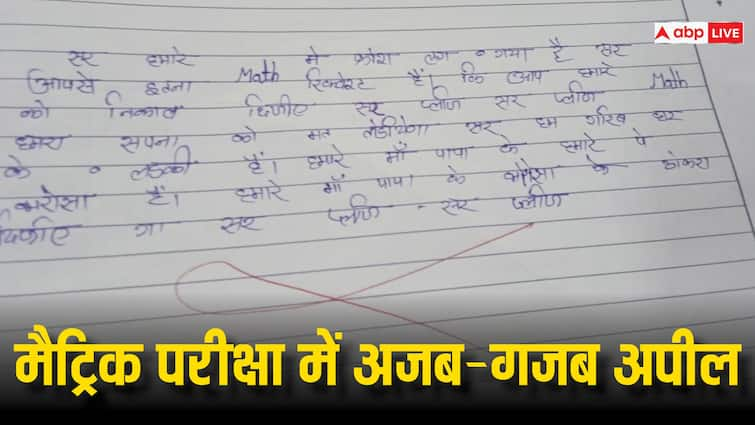 abp LIVE
सर हमारे में क्रोश लग गया है सर
आपसे इतना Math रिक्वेस्ट है। कि आप हमारे Math
को निकाल दिजीए सर प्लीज सर प्लीज
हमरा सपना को मत तोडीयेगा सर हम गरिब घर
के लडकी हैं। हमारे माँ पापा के हमारे पे
भरोसा हैं। हमारे माँ पापा के भरोसा के
दिजीए गा सर प्लीज सर प्लीज
मैट्रिक परीक्षा में अजब-गजब अपील